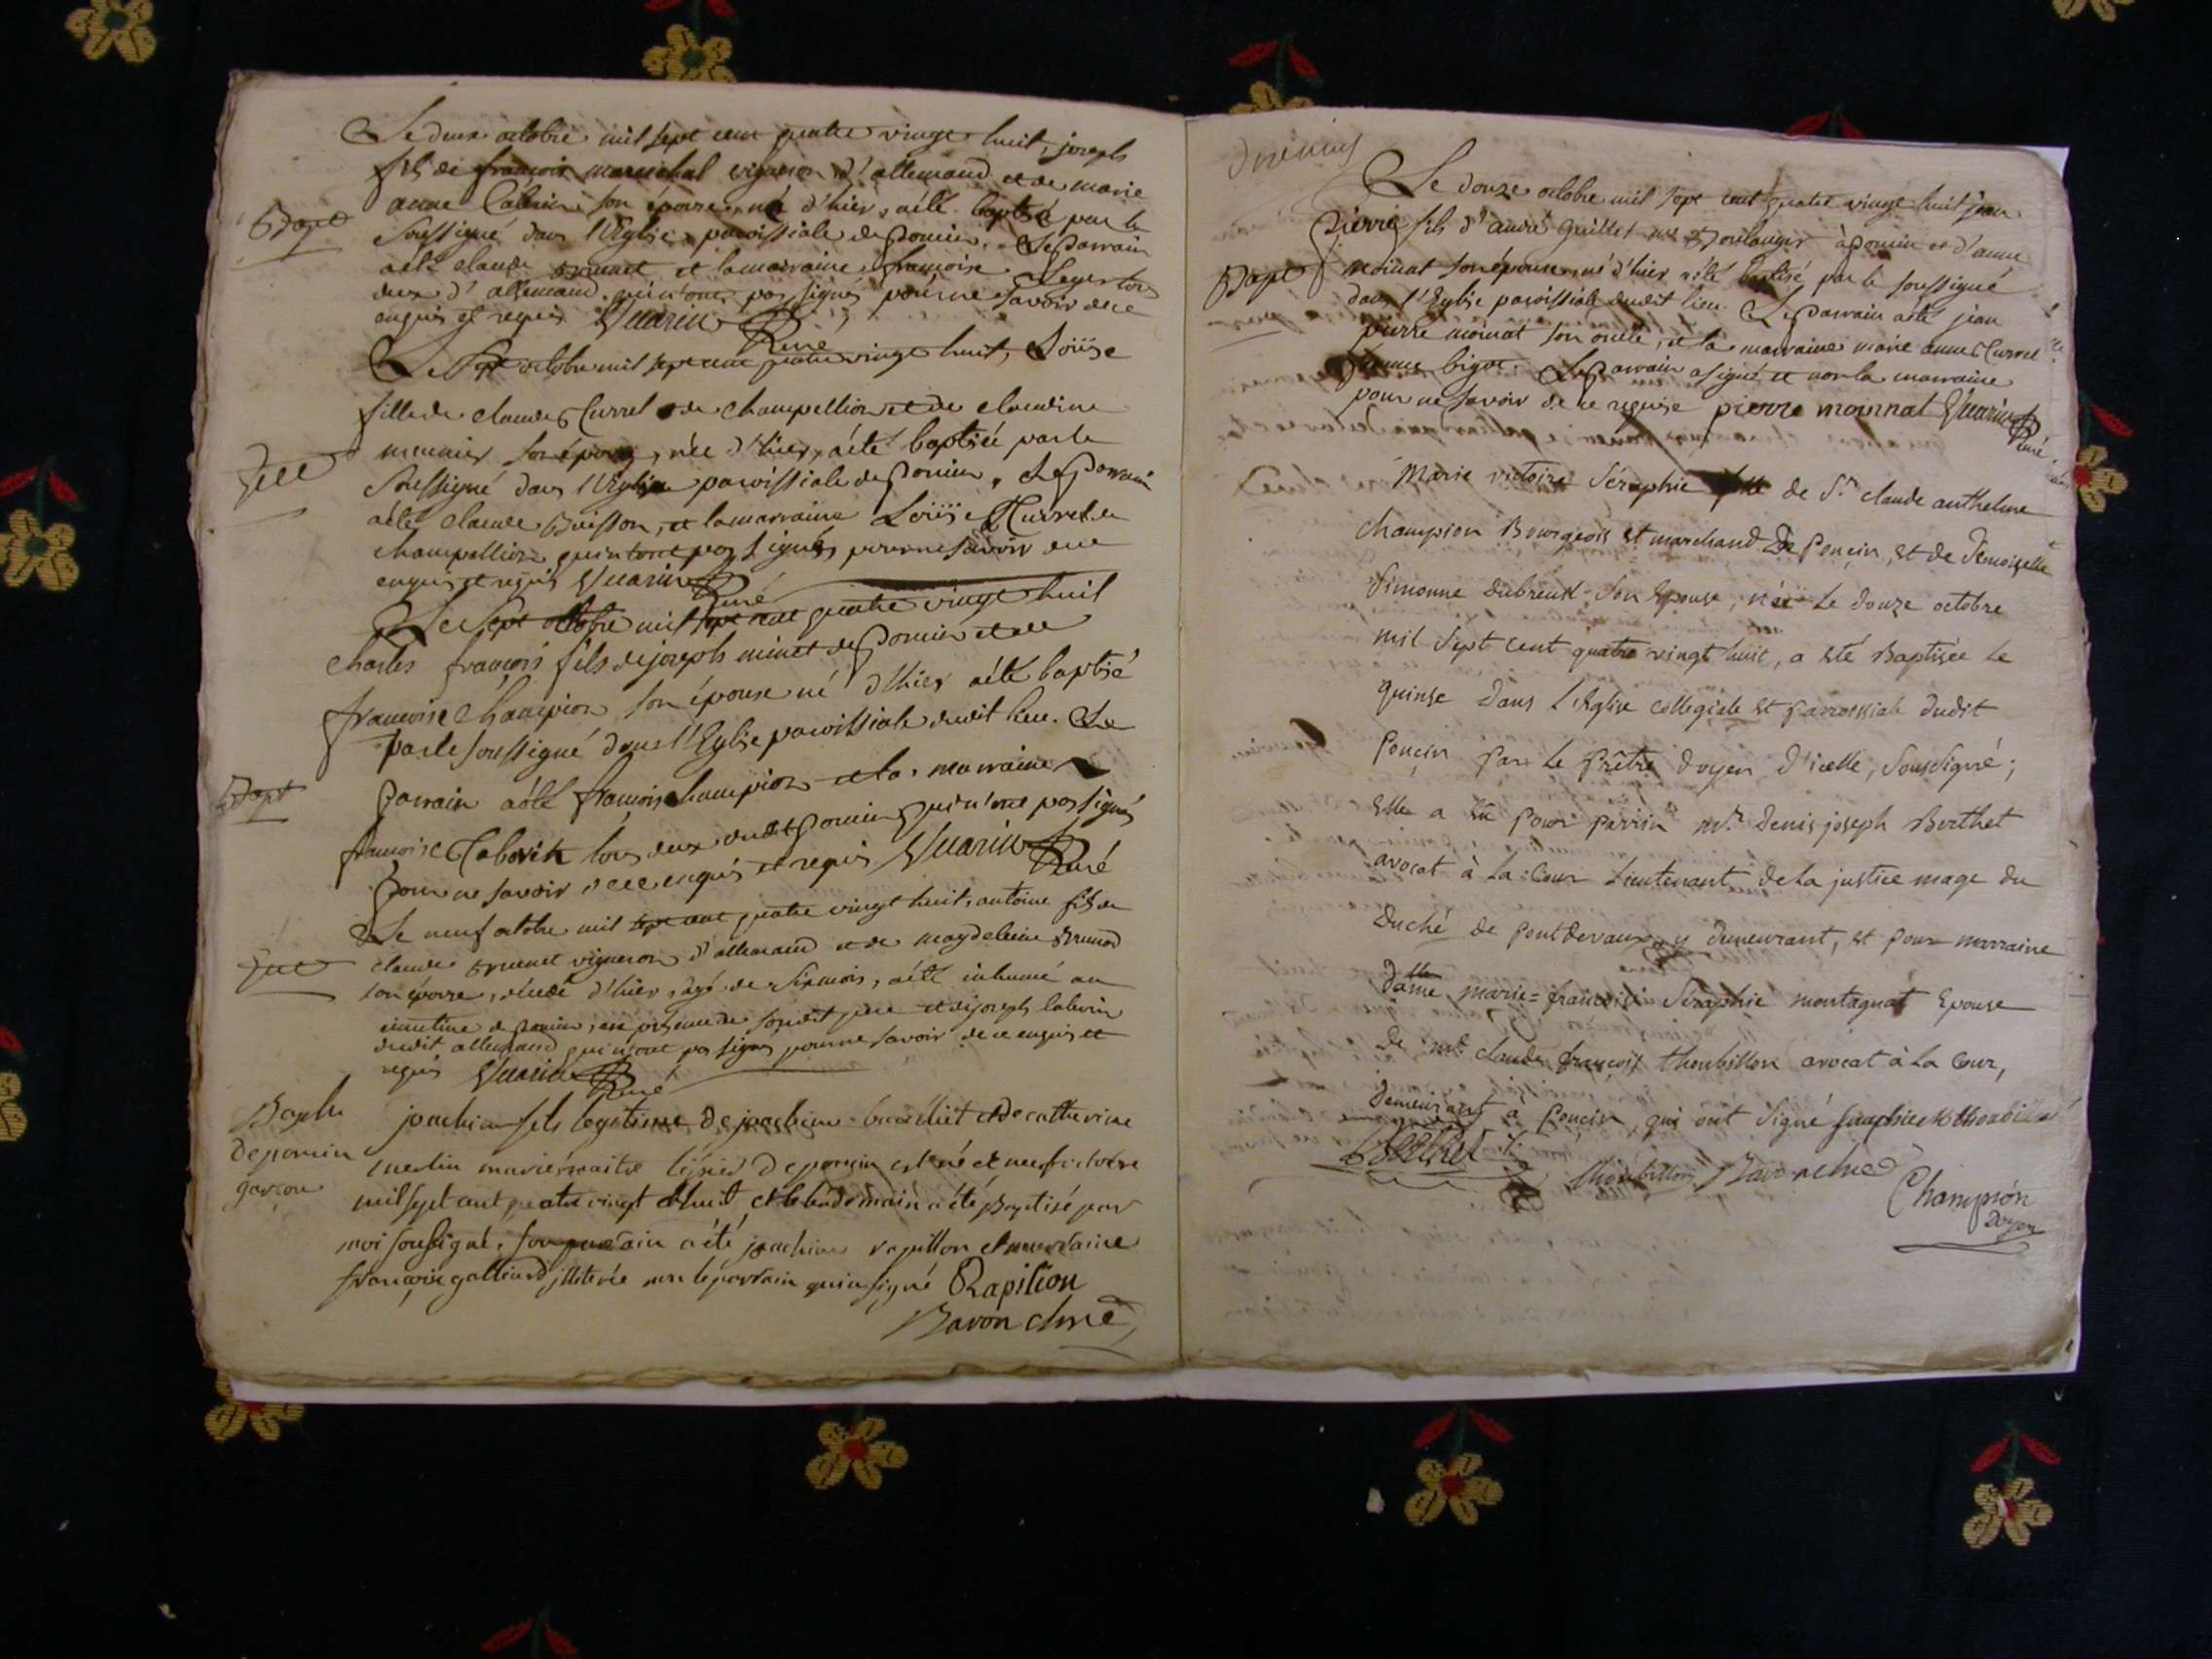 Le deux octobre mil sept cent quatre vingt huit, joseph
fils de françois mareschal vigneron d'allemand et de marie
anne son épouse, né d'hier, a été baptisé par le
Bapt
soussigné dans l'Eglise paroissiale de Poncin. Le Parrain
a été claude brunet et la marraine françoise Leger tous
deux d'allemand qui n'ont pas signés pour ne savoir de ce
enquis et requis Guarin Curé
Le sept octobre mil sept cent quatre vingt huit, Loüise
fille de claude Curvel de champellion et de claudine
meunier son épouse, née d'hier, a été baptisée par le
soussigné dans l'Eglise paroissiale de Poncin. Le Parrain
a été claude Buisson, et la marraine Loüise Curvel de
champellion qui n'ont pas signés pour ne savoir de ce
enquis et requis Guarin Curé
Le sept octobre mil sept cent quatre vingt huit
charles françois fils de joseph minet de Poncin et de
françoise champion son épouse né d'hier a été baptisé
par le soussigné dans l'Eglise paroissiale dudit lieu. Le
Bapt
Parrain a été françois champion et la marraine
françoise tous deux dudit Poncin qui n'ont pas signés
pour ne savoir de ce enquis et requis Guarin Curé
Le neuf octobre mil sept cent quatre vingt huit, antoine fils de
claude brunet vigneron d'allemand et de magdeleine
son épouse, décédé d'hier, agé de six mois, a été inhumé au
cimetiere de Poncin, en présence de sondit pere et de joseph
dudit allemand qui n'ont pas signés pour ne savoir de ce enquis et
requis Guarin Curé
Bapt
de poncin
garçon
joachim fils legitime de joachim et de catherine
merlin mariés de poncin est né le neuf octobre
mil sept cent quatre vingt et huit et le lendemain a été Baptisé par
moi soussigné. son parrain a été joachim rapillon et marraine
françoise galliend illiterée non le parrain qui a signé Rapilion
Bavon chne
Le douze octobre mil sept cent quatre vingt huit jean
pierre fils d'andré guillet me Boulanger à Poncin et d'anne
Bapt
moinat son épouse, né d'hier a été baptisé par le soussigné
dans l'Eglise paroissiale dudit lieu. Le Parrain a été jean
pierre moinat son oncle, et la marraine marie anne Curvel
femme bigot. Le Parrain a signé et non la marraine
pour ne savoir de ce requise pierre moinnat Guarin
Curé
Marie victoire Séraphie fille de Sr. claude anthelme
champion Bourgeois et marchand De Poncin, et de Demoiselle
Simonne dubreuil Son Epouse, née le douze octobre
mil Sept cent quatre vingt huit, a été Baptisée le
quinse dans l'église collegiale et parroissiale dudit
Poncin par le Prêtre doyen d'icelle, Soussigné;
Elle a eû pour parrin Mr. denis joseph Berthet
avocat à la Cour Lieutenant de la justice mage du
duché de pontdevaux y demeurant, et pour marraine
dame marie=françoise Séraphie montagnat Epouse
de Mr. claude françois thoubillon avocat à la Cour,
demeurant à Poncin, qui ont Signé
Berthet
thoubillon Bavon chne
Champion
Doyen